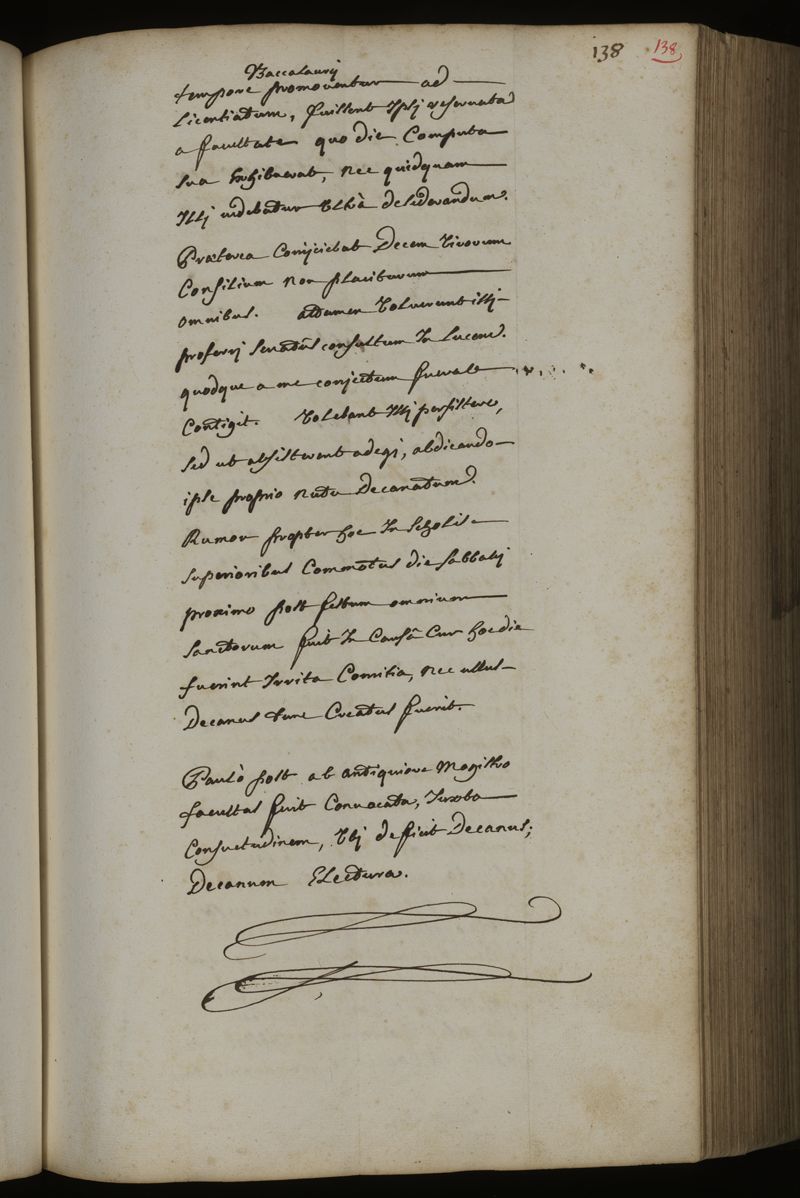 138 138
Baccalaurij
tempore promoventur ad
Licentiatum, fuissent Ipsj reservata
a facultate quo die Computa
sua Exhibuerat, nec quidquam
Illj videbatur Ultrà desiderandum.
Præterea Conijciebat Decem virorum
Consilium non placiturum
omnibus. attamen voluerunt illj
proferrj senatûs consultum In Lucem.
quodque a me conjectum fuerat
Contigit. Volebant Illj persistere,
sed ut absisterent adegi, abdicando
ipse proprio nutu Decanatum.
Rumor propter hoc In scholis
superioribus Commotus die sabbatj
proximo post festum omnium
sanctorum fuit In Causâ Cur hoc die
fuerint Irrita Comitia, nec ullus
Decanus tunc Creatus fuerit.
Paulò post ab antiquiore Magistro
facultas fuit Convocata, Juxta
Consuetudinem, Ubj deficit Decanus;
Decanum Electura.